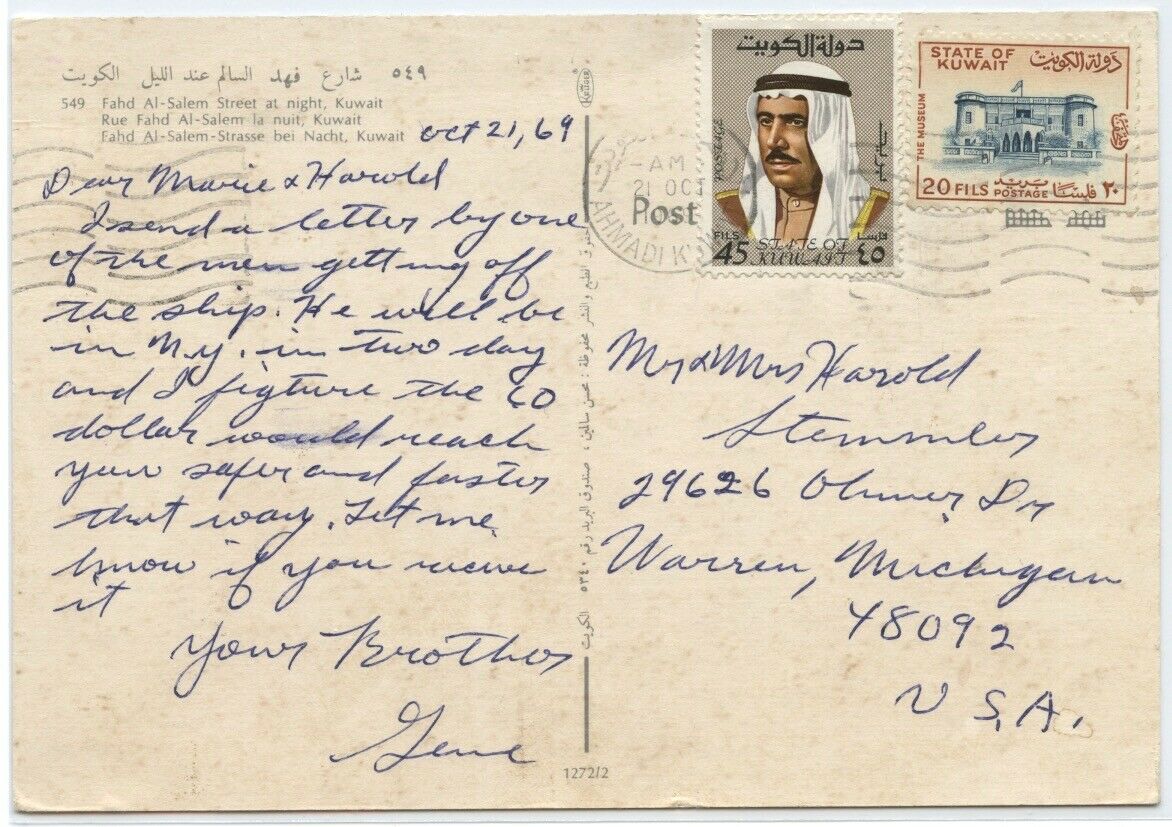 ٥٤٩ شارع فهد السالم عند الليل الكويت
549 Fahd Al-Salem Street at night, Kuwait
Rue Fahd Al-Salem la nuit, Kuwait
Fahd Al-Salem-Strasse bei Nacht, Kuwait
Oct 21, 69
Dear Marie & Harold
I send a letter by one
of the men getting off
the ship. He will be
in N.Y. in two day
and I figture the 60
dollar would reach
your safer and faster
that way. Let me
know if you receive
it
Yours Brother
Gene
KRÜGER
حقوق الطبع والنشر محفوظة : محسن سالمين ، صندوق البريد رقم ٥٣٤٠ الكويت
1272/2
AM
21 OCT
AHMADI K
Post
دولة الكويت
POSTAGE
FILS
45
STATE OF
KUWAIT
فلسا
٤٥
STATE OF
KUWAIT
دولة الكويت
THE MUSEUM
20 FILS POSTAGE بريد فلسا ٢٠
Mr & Mrs Harold
Stemmler
29626 Ohmer Dr
Warren, Michigan
48092
U S.A.